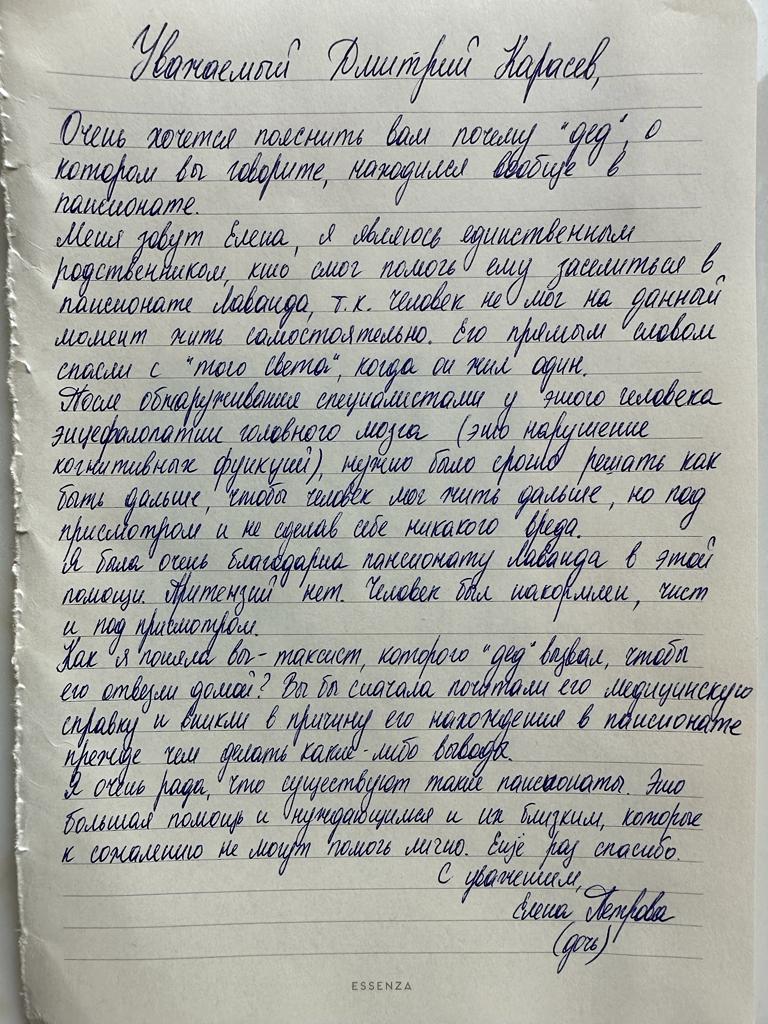 Уважаемый Дмитрий Карасев,
Очень хочется пояснить вам почему "дед", о
котором вы говорите, находился вообще в
пансионате.
Меня зовут Елена, я являюсь единственным
родственником, кто смог помочь ему заселиться в
пансионате Лаванда, т.к. человек не мог на данный
момент жить самостоятельно. Его прямым словом
спасли с "того света", когда он жил один.
После обнаруживания специалистами у этого человека
энцефалопатии головного мозга (это нарушение
когнитивных функций), нужно было срочно решать как
быть дальше, чтобы человек мог жить дальше, но под
присмотром и не сделав себе никакого вреда.
Я была очень благодарна пансионату Лаванда в этой
помощи. Притензий нет. Человек был накормлен, чист
и под присмотром.
Как я поняла вы - таксист, которого "дед" вызвал, чтобы
его отвезли домой? Вы бы сначала почитали его медицинскую
справку и вникли в причину его нахождения в пансионате
прежде чем делать какие-либо выводы.
Я очень рада, что существуют такие пансионаты. Это
большая помощь и нуждающимся и их близким, которые
к сожалению не могут помочь лично. Ещё раз спасибо.
С уважением,
Елена Петрова
(дочь)
ESSENZA